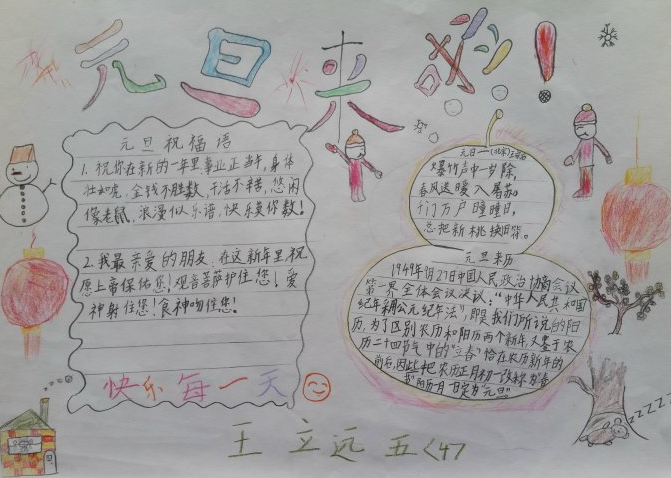 元旦来啦!
元旦祝福语
1.祝你在新的一年里事业正当午,身体
壮如虎,金钱不胜数,干活不辛苦,悠闲
像老鼠,浪漫似乐谱,快乐莫你数!
2.我最亲爱的朋友,在这新年里祝
愿上帝保佑您!观音菩萨护住您!爱
神射住您!食神吻住您!
快乐每一天
元日—(北宋)王安石
爆竹声中一岁除,
春风送暖入屠苏。
千门万户曈曈日,
总把新桃换旧符。
元旦来历
1949年9月27日中国人民政治协商会议
第一界全体会议决议:"中华人民共和国
纪年采用公元纪年法",即是我们所说的阳
历,为了区别农历和阳历两个新年,又鉴于农
历二十四节气中的"立春"恰在农历新年的
前后,因此把农历正月初一改称为"春
节"阳历一月一日定为"元旦"
王立远 五<4>
zzzzz